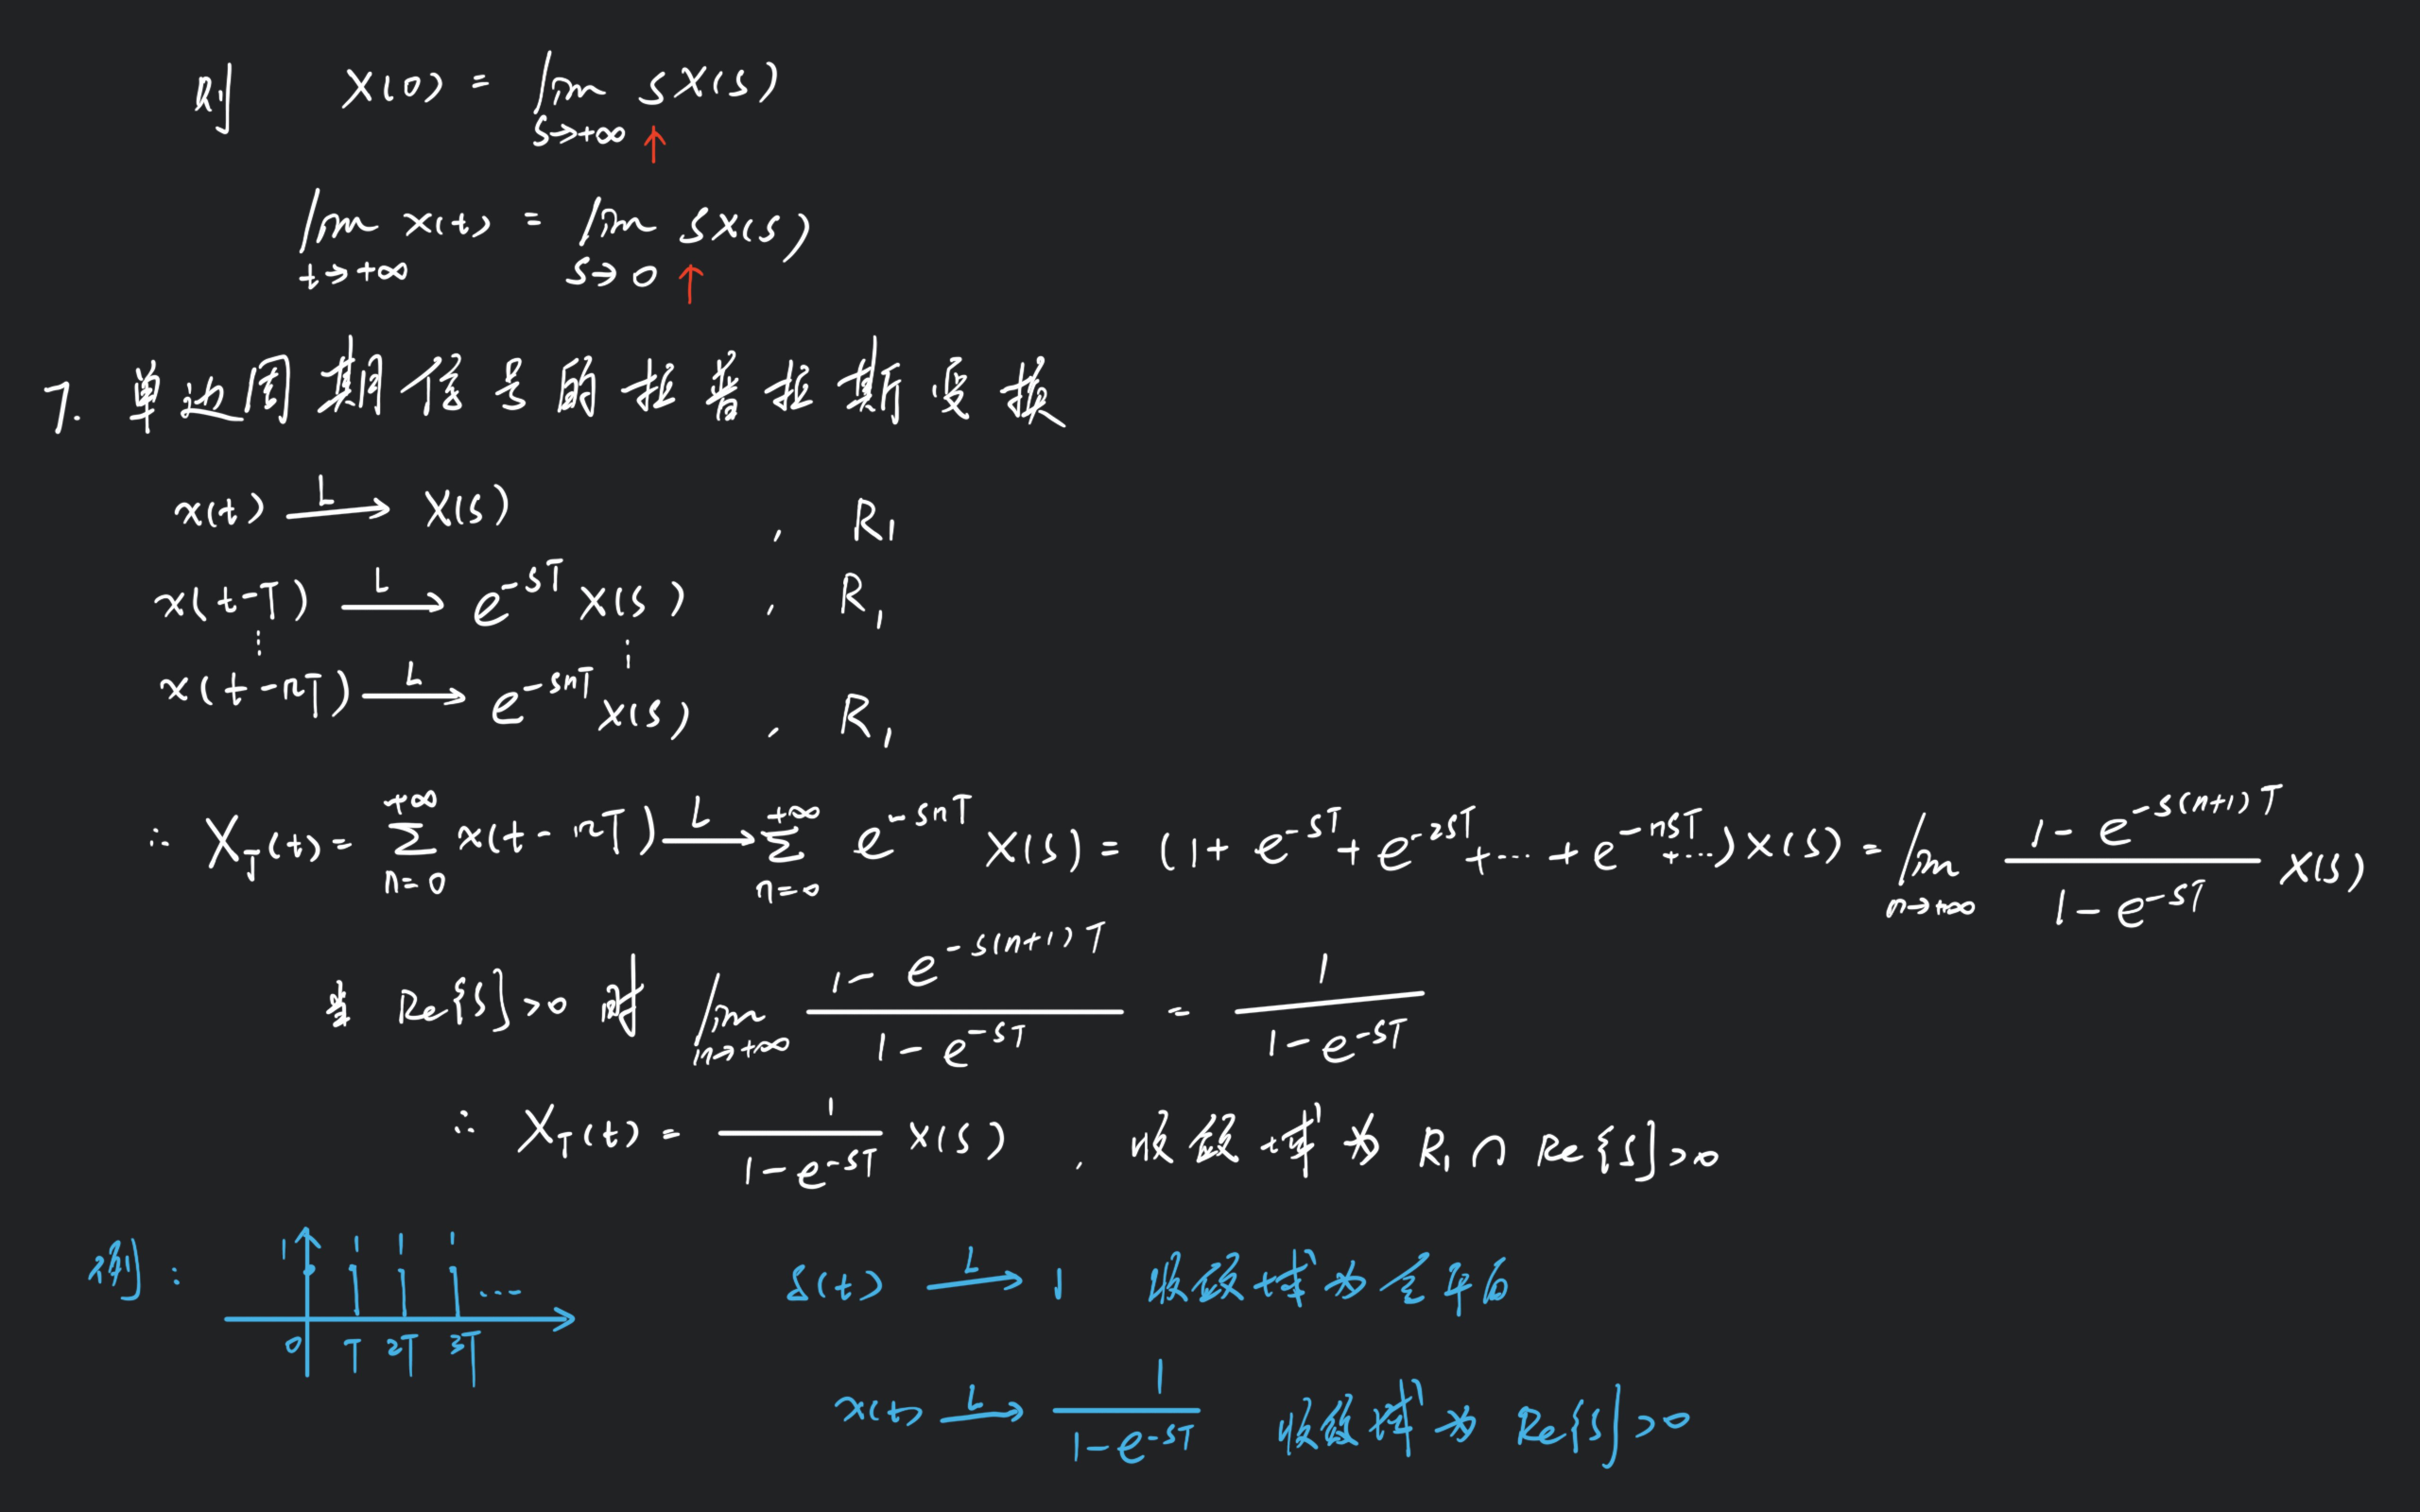 则 X(0) = lim s→+∞ sX(s)
↑
lim t→+∞ x(t) = lim s→0 sX(s)
↑
7. 单边周期信号的拉普拉斯变换
x(t) —L→ X(s) , R₁
x(t-T) —L→ e^{-sT} X(s) , R₁
⋮ ⋮
x(t-nT) —L→ e^{-snT} X(s) , R₁
∴ X_T(t) = ∑_{n=0}^{+∞} x(t-nT) —L→ ∑_{n=0}^{+∞} e^{-snT} X(s) = (1+ e^{-sT} + e^{-2sT} + ⋯ + e^{-nsT} + ⋯) X(s) = lim n→+∞ (1 - e^{-s(n+1)T}) / (1 - e^{-sT}) X(s)
当 Re{s}>0 时 lim n→+∞ (1 - e^{-s(n+1)T}) / (1 - e^{-sT}) = 1 / (1 - e^{-sT})
∴ X_T(t) = 1 / (1 - e^{-sT}) X(s) , 收敛域为 R₁ ∩ Re{s}>0
例: 1 1 1 1 ⋯ δ(t) —L→ 1 收敛域为全平面
0 T 2T 3T
x(t) —L→ 1 / (1 - e^{-sT}) 收敛域为 Re{s}>0